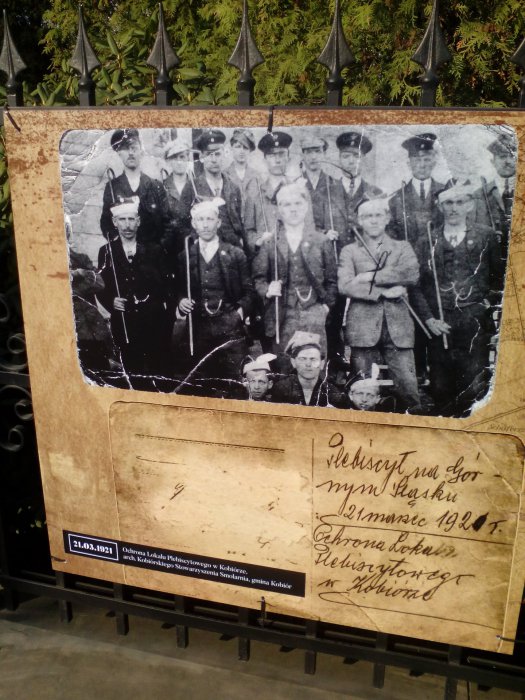 Plebiscyt na Gór-
nym Śląsku
21 marzec 1921 r.
Ochrona Lokalu
Plebiscytowego
w Kobiorze
21.03.1921
Ochrona Lokalu Plebiscytowego w Kobiórze,
arch. Kobiórskiego Stowarzyszenia Smolarnia, gmina Kobiór